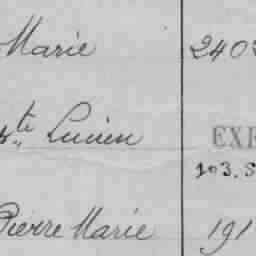 Marie 240
te Lucien EXE
103. S
Pierre Marie 191